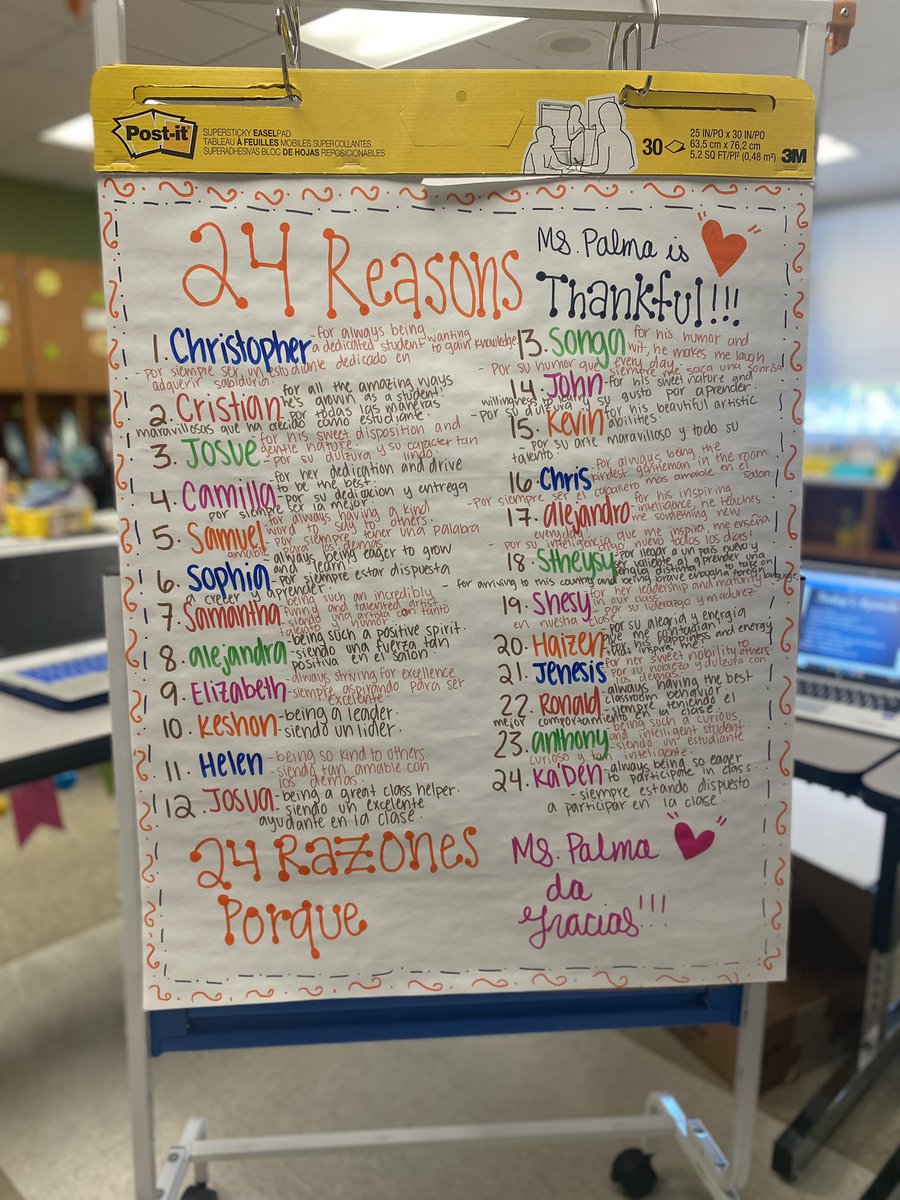 Post-it
SUPERSTICKY EASELPAD
TABLEAU À FEUILLES MOBILES SUPERCOLLANTES
SUPERADHESIVAS BLOC DE HOJAS REPOSICIONABLES
30
25 IN/PO x 30 IN/PO
63,5 cm x 76,2 cm
5.2 SQ FT/PI² (0,48 m²)
3M
24 Reasons
Ms. Palma is
Thankful!!!
1. Christopher - for always being
a dedicated student wanting
to gain knowledge
- por siempre ser un estudiante dedicado en
adquerir sabiduria.
2. Cristian - for all the amazing ways
he's grown as a student.
- por todas las maneras
maravillosas que ha crecido como estudiante
3. Josue - for his sweet disposition and
gentle nature
- por su dulzura y su caracter tan
lindo.
4. Camilla - for her dedication and drive
to be the best.
- por su dedicacion y entrega
por siempre ser la mejor
5. Samuel - for always having a kind
word to say to others.
- por siempre tener una palabra
amable para los demas.
6. Sophia - always being eager to grow
and learn.
- por siempre estar dispuesta
a crecer y aprender
7. Samantha - being such an incredibly
funny and talented artist
- siendo una artista con tanto
talento y humor
8. alejandra - being such a positive spirit.
- siendo una fuerza tan
positiva en el salon.
9. Elizabeth - always striving for excellence
- siempre aspirando para ser
excelente
10. Keshon - being a leader.
- siendo un lider.
11. Helen - being so kind to others.
- siendo tan amable con
los demas.
12. Josua - being a great class helper.
- siendo un excelente
ayudante en la clase.
13. Songa - for his humor and
wit, he makes me laugh
every day.
- Por su humor que siempre me saca una sonrisa
14. John - for his sweet nature and
willingness to learn
- por su dulzura y su gusto por aprender.
15. Kevin - for his beautiful artistic
abilities.
- por su arte maravilloso y todo su
talento.
16. Chris - for always being the
kindest gentleman in the room.
- por siempre ser el caballero mas amable en el salon.
17. alejandro - for his inspiring
intelligence, he teaches
me something new
everyday.
- por su inteligencia que me inspira, me enseña
algo nuevo todos los dias!
18. Stheysy - por llegar a un pais nuevo y
ser valiente al aprender una
lengua distinta
- for arriving to this country and being brave enough to take on foreign language.
19. Shesy - for her leadership and maturity
in our class.
- por su liderazgo y madurez
en nuestra clase
20. Haizen - por su alegria y energia
que me contagian.
- for his happiness and energy
that inspire me
21. Jenesis - for her sweet nobility to others.
- por su nobleza y dulzura con
los demas.
22. Ronald - always having the best
classroom behavior.
- siempre teniendo el
mejor comportamiento en la clase.
23. anthony - being such a curious
and intelligent student
- siendo un estudiante
curioso y tan inteligente.
24. Kaiden - always being so eager
to participate in class.
- siempre estando dispuesto
a participar en la clase.
24 Razones
Porque
Ms. Palma
da
gracias!!!